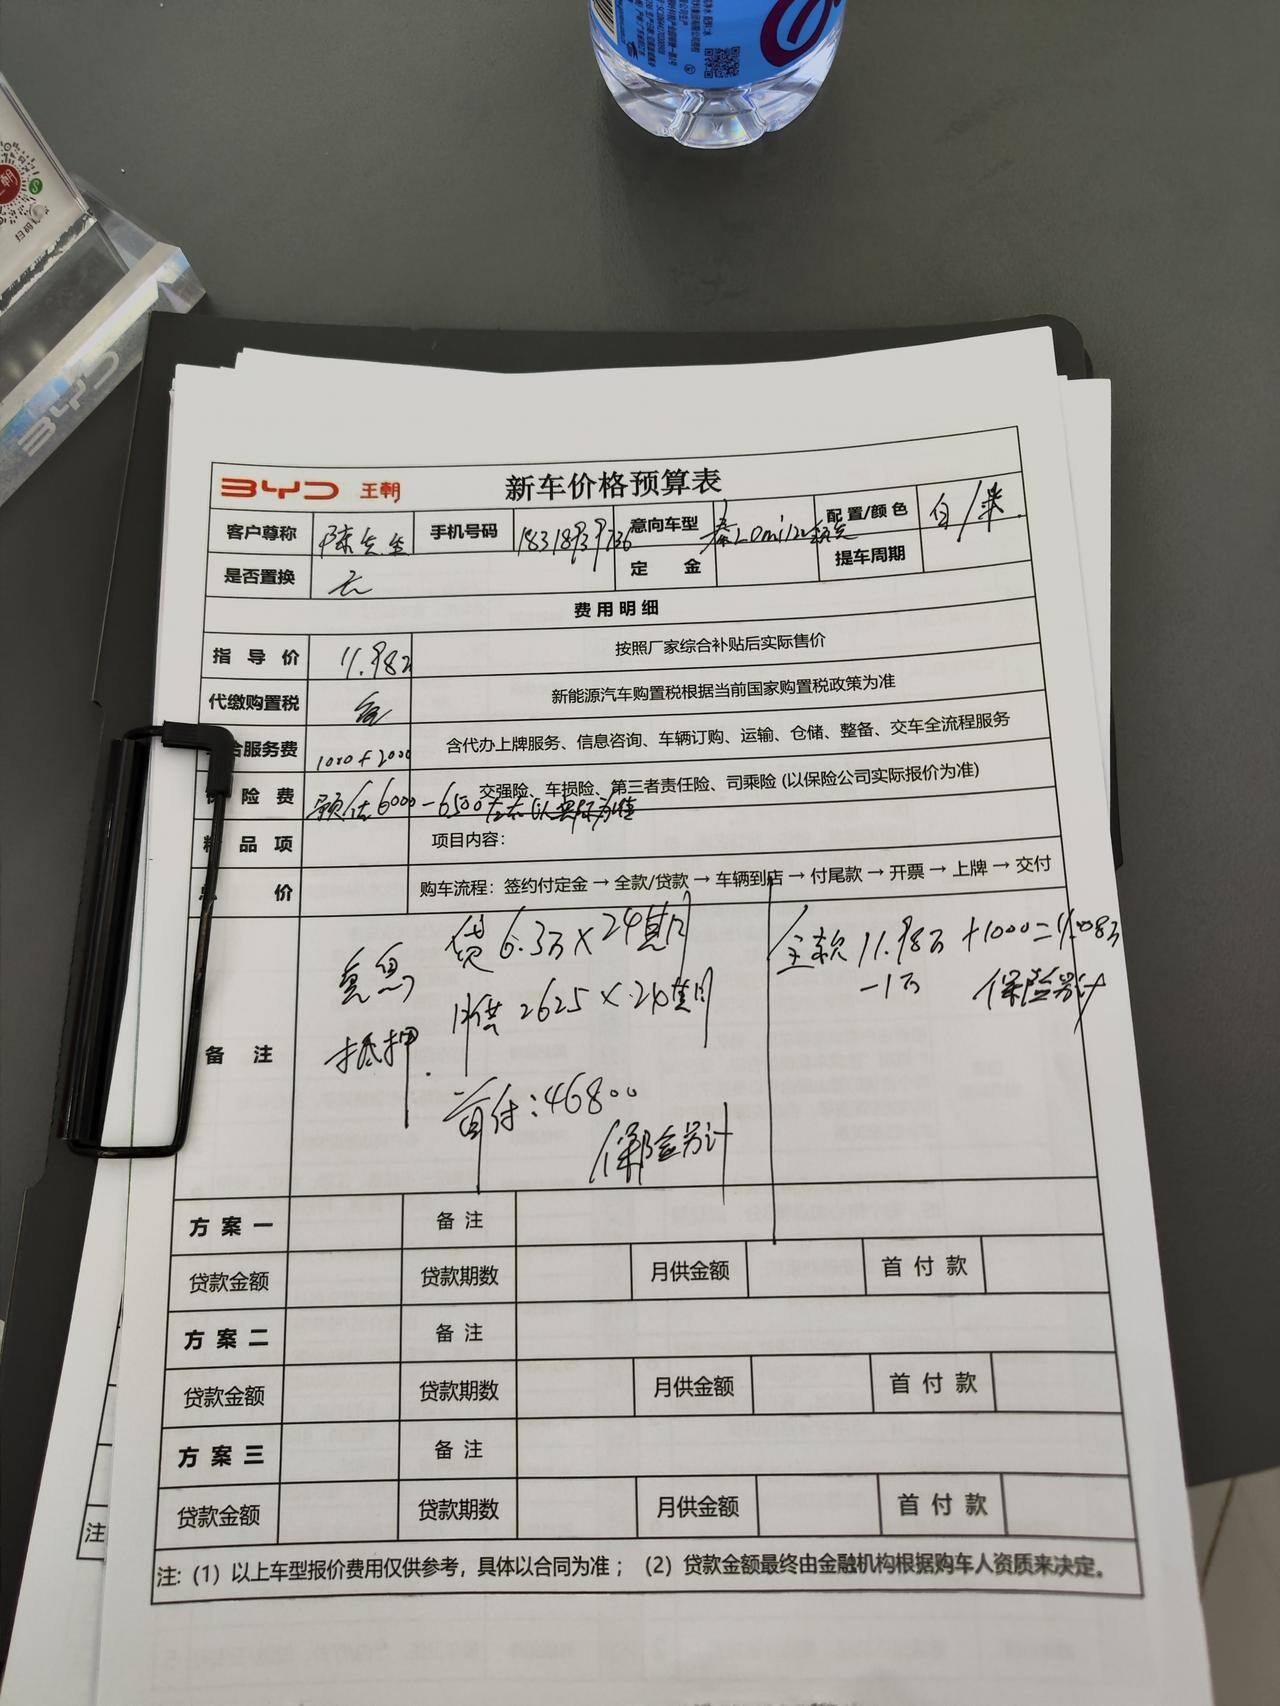 BYD
BYD 王朝 新车价格预算表
客户尊称 陈先生 手机号码 意向车型 秦L DMi 配置/颜色 白/米
是否置换 无 定金 提车周期
费用明细
指导价 11.98万 按照厂家综合补贴后实际售价
代缴购置税 免 新能源汽车购置税根据当前国家购置税政策为准
合服务费 1000+2000 含代办上牌服务、信息咨询、车辆订购、运输、仓储、整备、交车全流程服务
险费 预估6000-6500左右以实际为准 交强险、车损险、第三者责任险、司乘险(以保险公司实际报价为准)
品项 项目内容：
价 购车流程：签约付定金→全款/贷款→车辆到店→付尾款→开票→上牌→交付
备注
免息
抵押.
贷6.3万×24期
月供2625×24期
首付:46800
保险另计
全款11.98万+1000=11.08万
-1万 保险另计
方案一 备注
贷款金额 贷款期数 月供金额 首付款
方案二 备注
贷款金额 贷款期数 月供金额 首付款
方案三 备注
贷款金额 贷款期数 月供金额 首付款
注:（1）以上车型报价费用仅供参考，具体以合同为准；（2）贷款金额最终由金融机构根据购车人资质来决定。
注